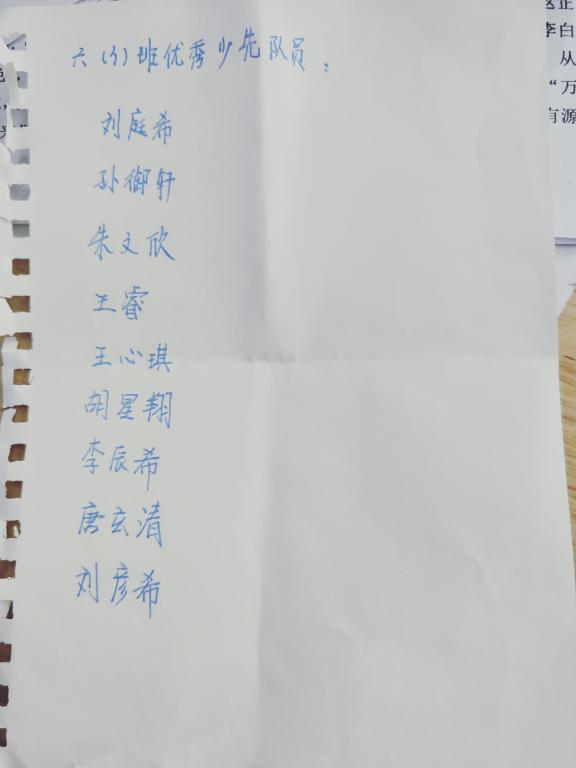 六(3)班优秀少先队员:
刘庭希
孙御轩
朱文欣
王睿
王心琪
胡星翔
李辰希
唐玄清
刘彦希
这正
李白
从
“万
有源